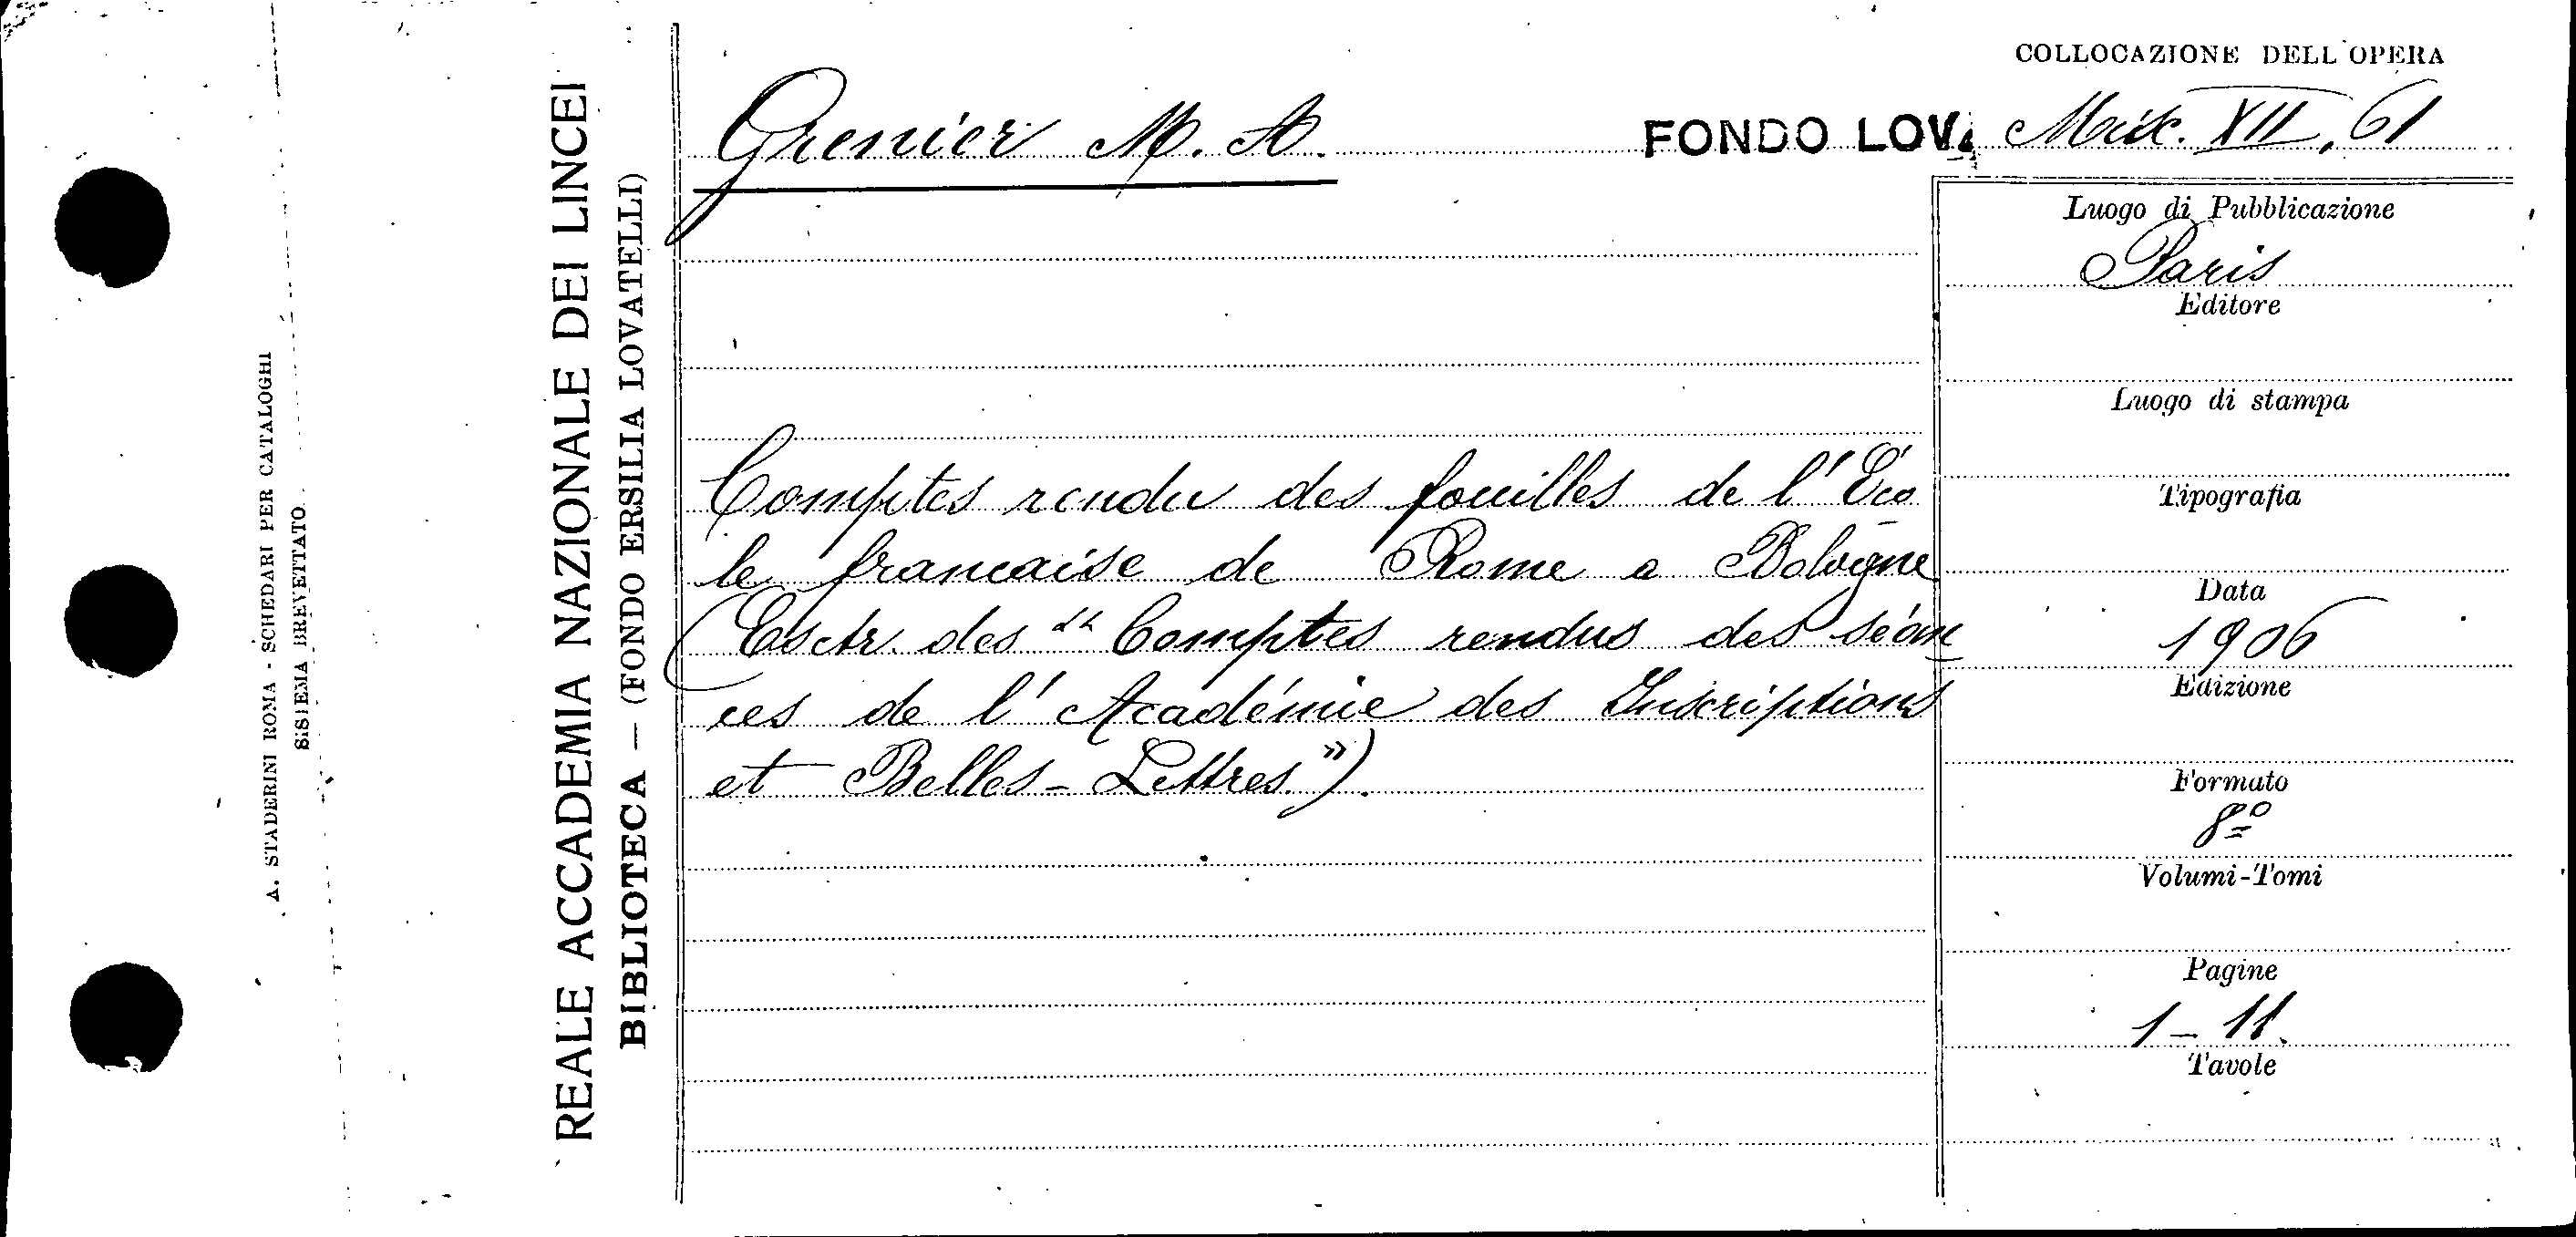 A. STADERINI ROMA - SCHEDARI PER CATALOGHI
SISTEMA BREVETTATO.
REALE ACCADEMIA NAZIONALE DEI LINCEI
BIBLIOTECA — (FONDO ERSILIA LOVATELLI)
COLLOCAZIONE DELL'OPERA
Grenier M. A.
FONDO LOV. Misc. XII, 61
Comptes rendu des fouilles de l'Éco
le francaise de Rome a Bologne
(Estr. des "Comptes rendus des séan
ces de l'Académie des Inscriptions
et Belles-Lettres").
Luogo di Pubblicazione
Paris
Editore
Luogo di stampa
Tipografia
Data
1906
Edizione
Formato
8º
Volumi-Tomi
Pagine
1-11.
Tavole